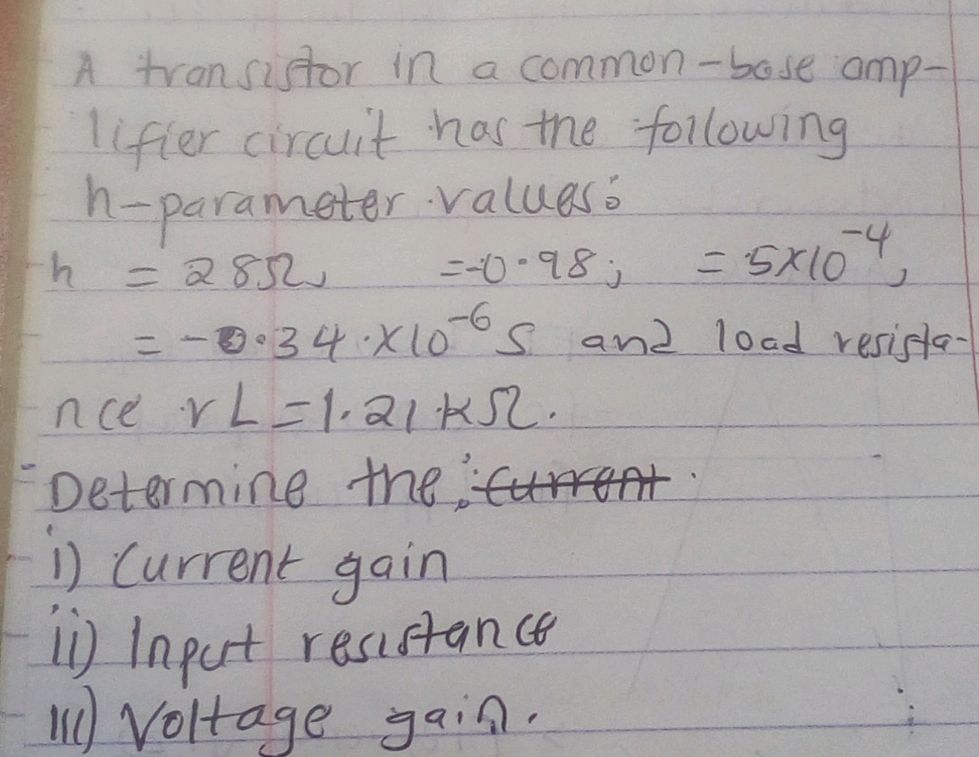 A transistor in a common-base amp-
lifier circuit has the following
h-parameter values:
h = 28Ω, =-0.98; = 5×10⁻⁴,
= -0.34 × 10⁻⁶ S and load resista-
nce rL = 1.21 kΩ.
Determine the: current
i) Current gain
ii) Input resistance
iii) Voltage gain.